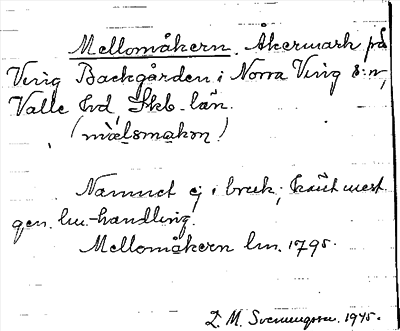 Mellomåkern. Åkermark på
Ving Backgården i Norra Ving s:n,
Valle hd, Skb. län.
(mælsmakon)
Namnet ej i bruk; känt mest
gen. lm.-handling.
Mellomåkern lm. 1795.
M. Svenungsson. 1945.